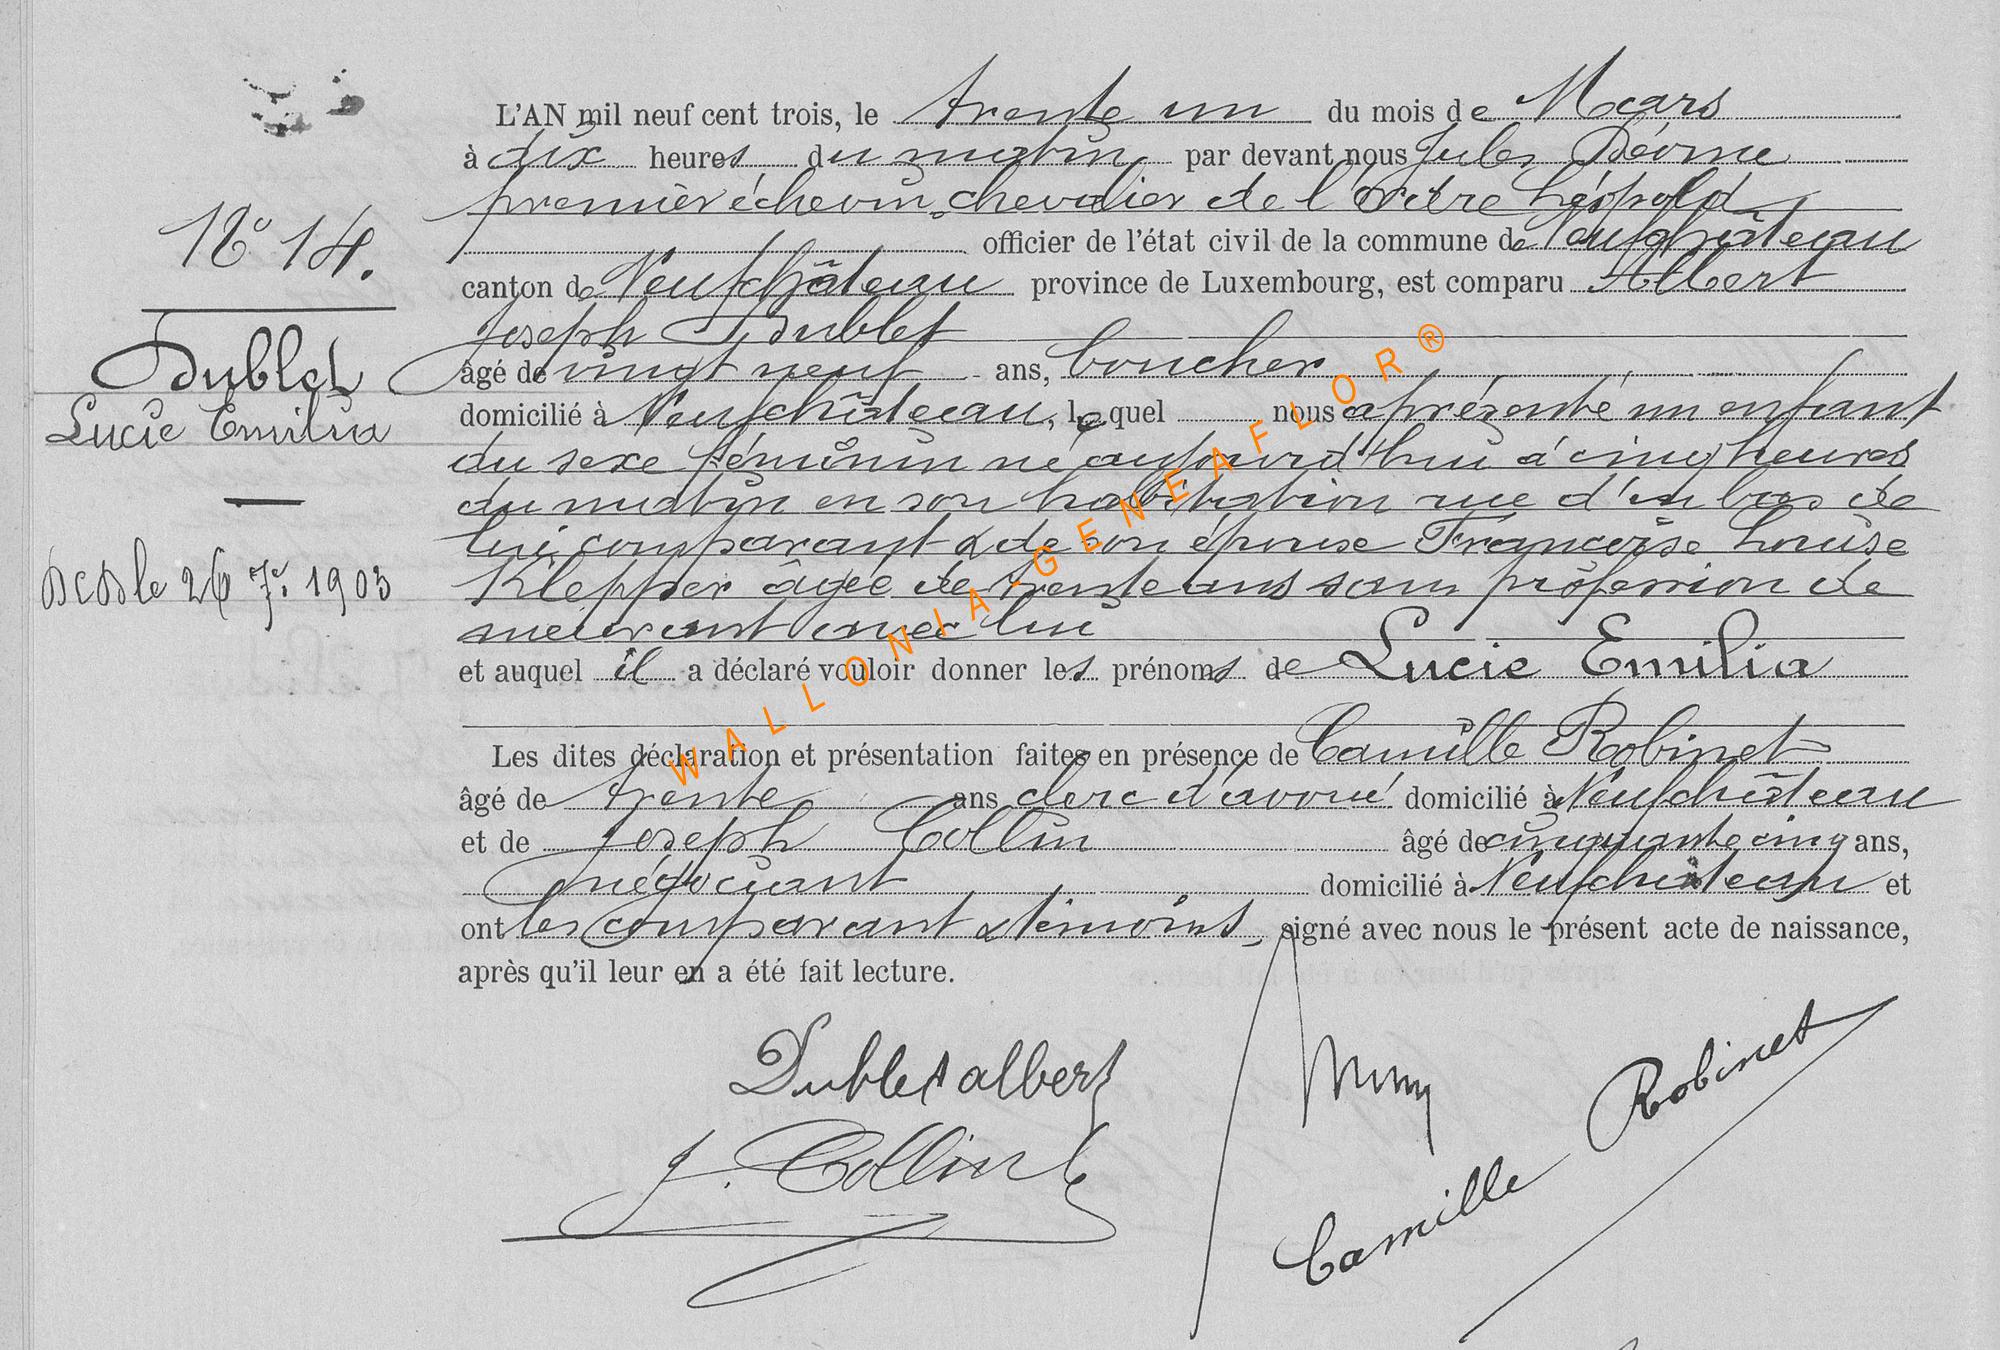 N° 14.
Dublet
Lucie Emilia
Dcd le 26 7re 1903
L'AN mil neuf cent trois, le trente un du mois de Mars
à dix heures du matin par devant nous Jules
premier échevin, chevalier de l'Ordre Léopold
officier de l'état civil de la commune de Neufchâteau
canton de Neufchâteau province de Luxembourg, est comparu Albert
Joseph Dublet
âgé de vingt neuf ans, boucher
domicilié à Neufchâteau, lequel nous a présenté un enfant
du sexe féminin né aujourd'hui à cinq heures
du matin en son habitation rue d'en bas de
lui comparant & de son épouse Françoise Louise
Klepper âgée de trente ans sans profession de
meurant avec lui
et auquel il a déclaré vouloir donner les prénoms de Lucie Emilia
Les dites déclaration et présentation faites en présence de Camille Robinet
âgé de trente ans clerc d'avoué domicilié à Neufchâteau
et de Joseph Collin âgé de cinquante cinq ans,
négociant domicilié à Neufchâteau et
ont les comparant & témoins, signé avec nous le présent acte de naissance,
après qu'il leur en a été fait lecture.
Dublet albert
J. Collin
Camille Robinet
WALLONIA-GENEAFLOR®